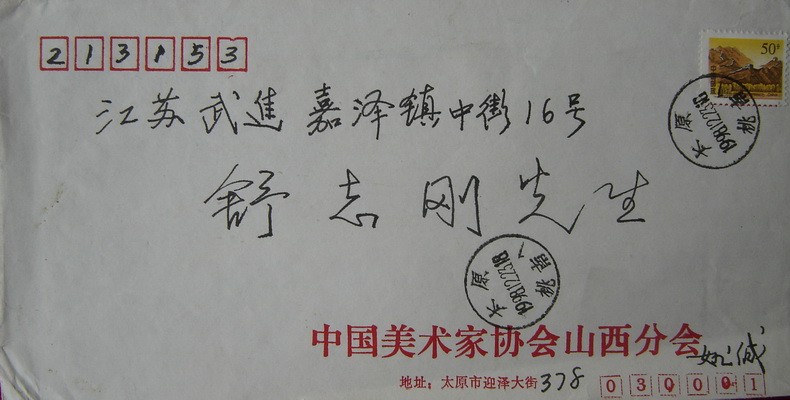 213153
50分
江苏 武進 嘉泽镇中街16号
太原 1998.12.23.18
舒志刚先生
太原 1998.12.23.18
中国美术家协会山西分会
地址：太原市迎泽大街378
030001